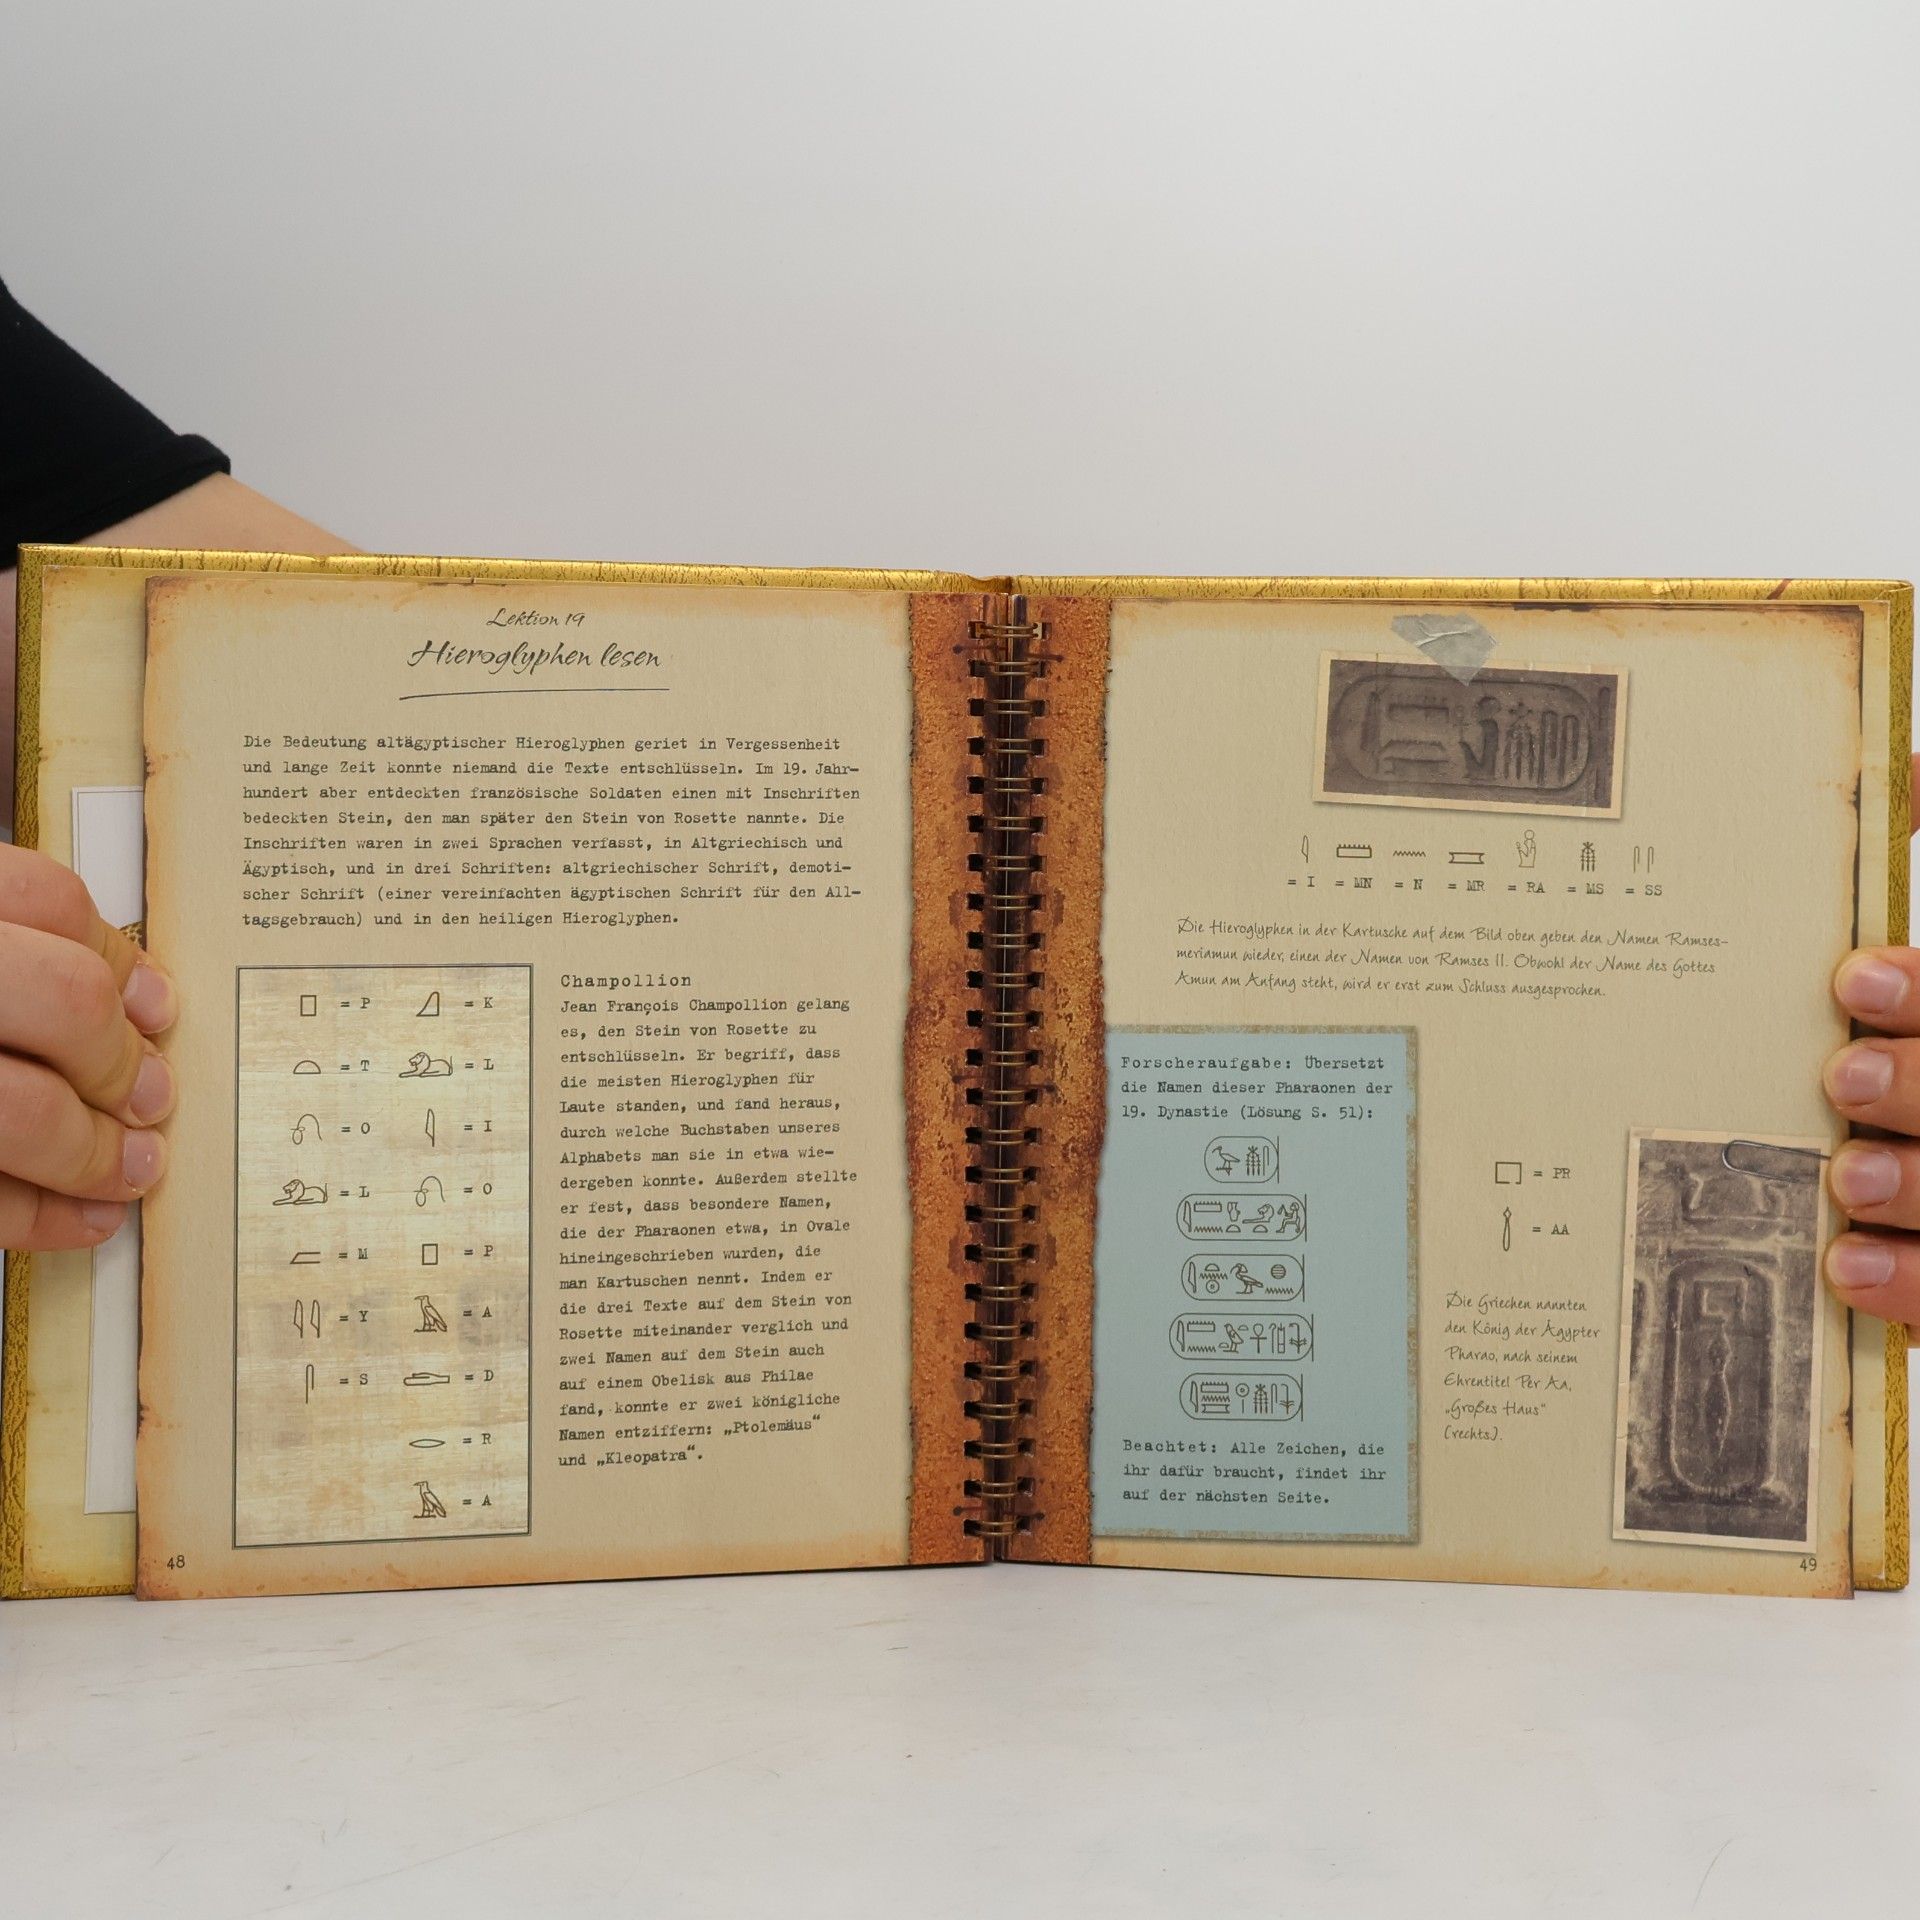 Lektion 19
Hieroglyphen lesen
Die Bedeutung altägyptischer Hieroglyphen geriet in Vergessenheit
und lange Zeit konnte niemand die Texte entschlüsseln. Im 19. Jahr-
hundert aber entdeckten französische Soldaten einen mit Inschriften
bedeckten Stein, den man später den Stein von Rosette nannte. Die
Inschriften waren in zwei Sprachen verfasst, in Altgriechisch und
Ägyptisch, und in drei Schriften: altgriechischer Schrift, demoti-
scher Schrift (einer vereinfachten ägyptischen Schrift für den All-
tagsgebrauch) und in den heiligen Hieroglyphen.
= P = K
= T = L
= O = I
= L = O
= M = P
= Y = A
= S = D
= R
= A
Champollion
Jean François Champollion gelang
es, den Stein von Rosette zu
entschlüsseln. Er begriff, dass
die meisten Hieroglyphen für
Laute standen, und fand heraus,
durch welche Buchstaben unseres
Alphabets man sie in etwa wie-
dergeben konnte. Außerdem stellte
er fest, dass besondere Namen,
die der Pharaonen etwa, in Ovale
hineingeschrieben wurden, die
man Kartuschen nennt. Indem er
die drei Texte auf dem Stein von
Rosette miteinander verglich und
zwei Namen auf dem Stein auch
auf einem Obelisk aus Philae
fand, konnte er zwei königliche
Namen entziffern: „Ptolemäus“
und „Kleopatra“.
48
= I = MN = N = MR = RA = MS = SS
Die Hieroglyphen in der Kartusche auf dem Bild oben geben den Namen Ramses-
meriamun wieder, einen der Namen von Ramses II. Obwohl der Name des Gottes
Amun am Anfang steht, wird er erst zum Schluss ausgesprochen.
Forscheraufgabe: Übersetzt
die Namen dieser Pharaonen der
19. Dynastie (Lösung S. 51):
Beachtet: Alle Zeichen, die
ihr dafür braucht, findet ihr
auf der nächsten Seite.
= PR
= AA
Die Griechen nannten
den König der Ägypter
Pharao, nach seinem
Ehrentitel Per Aa,
„Großes Haus“
(rechts).
49